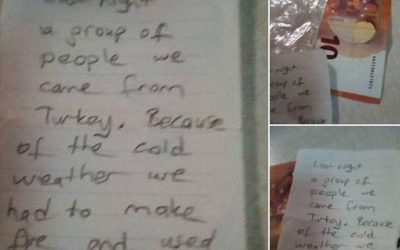 Last night
a group of
people we
came from
Turkey. Because
of the cold
weather we
had to make
fire and used
10
night
people we
from
Last night
a group of
people we
came from
Turkey. Because
of the cold
weather we